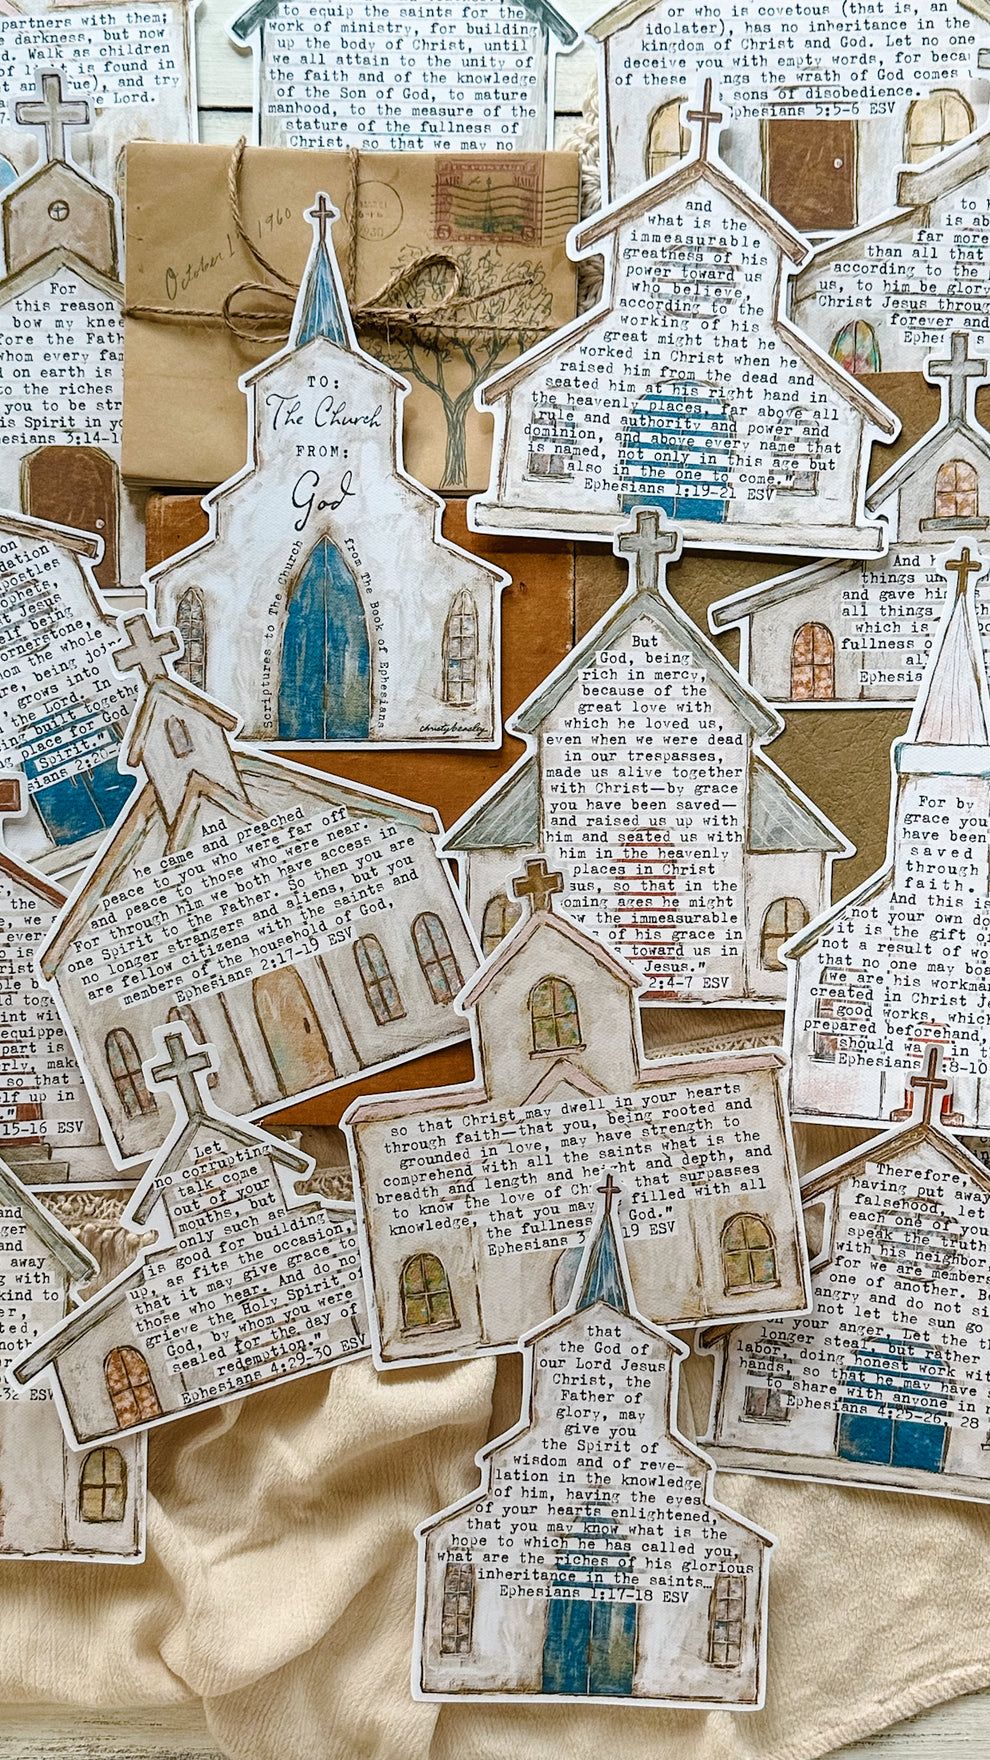 partners with them;
darkness, but now
Walk as children
is found in
and try
the Lord.
to equip the saints for the
work of ministry, for building
up the body of Christ, until
we all attain to the unity of
the faith and of the knowledge
of the Son of God, to mature
manhood, to the measure of the
stature of the fullness of
Christ, so that we may no
or who is covetous (that is, an
idolater), has no inheritance in the
kingdom of Christ and God. Let no one
deceive you with empty words, for
of these the wrath of God comes
sons of disobedience.
5:5-6 ESV
October 1960
AIR MAIL
TO:
The Church
FROM:
God
Scriptures to The Church
from The Book of Ephesians
christybeasley
and
what is the
immeasurable
greatness of his
power toward us
who believe,
according to the
working of his
great might that he
worked in Christ when he
raised him from the dead and
seated him at his right hand in
the heavenly places, far above all
rule and authority and power and
dominion, and above every name that
is named, not only in this age but
also in the one to come."
Ephesians 1:19-21 ESV
to
is ab
far more
than all that
according to the
us, to him be glory
Christ Jesus throug
forever and
For
this reason
bow my knee
fore the Fath
whom every fam
on earth is
to the riches
you to be str
his Spirit in yo
3:14-1
And
things
and gave
all things
which is
fullness
dation
apostles
Jesus
cornerstone,
the whole
being
grows into
the Lord. In
built together
place for God
Spirit."
But
God, being
rich in mercy,
because of the
great love with
which he loved us,
even when we were dead
in our trespasses,
made us alive together
with Christ—by grace
you have been saved—
and raised us up with
him and seated us with
him in the heavenly
places in Christ
sus, so that in the
oming ages he might
ow the immeasurable
of his grace in
toward us in
Jesus."
2:4-7 ESV
And
he came and preached
peace to you who were far off
and peace to those who were near.
For through him we both have access in
one Spirit to the Father. So then you are
no longer strangers and aliens, but you
are fellow citizens with the saints and
members of the household of God,
Ephesians 2:17-19 ESV
For by
grace you
have been
saved
through
faith.
And this is
not your own do
it is the gift o
not a result of wo
that no one may boa
we are his workman
created in Christ Je
good works, which
prepared beforehand,
should wa in t
Ephesians :8-10
the
ever
is
equipped
part is
make
so that
elf up in
15-16 ESV
so that Christ may dwell in your hearts
through faith—that you, being rooted and
grounded in love, may have strength to
comprehend with all the saints what is the
breadth and length and height and depth, and
to know the love of Chr that surpasses
knowledge, that you may filled with all
the fullness God."
Ephesians 3 19 ESV
Let
no corrupting
talk come
out of your
mouths, but
only such as
is good for building
up, as fits the occasion,
that it may give grace to
those who hear. And do not
grieve the Holy Spirit of
God, by whom you were
sealed for the day of
redemption."
Ephesians 4:29-30 ESV
and
away
with
kind to
-32 ESV
Therefore,
having put away
falsehood, let
each one of you
speak the truth
with his neighbor,
for we are members
one of another. Be
angry and do not si
not let the sun go
on your anger. Let the th
longer steal, but rather
labor, doing honest work wit
hands, so that he may have s
to share with anyone in n
Ephesians 4:25-26, 28
that
the God of
our Lord Jesus
Christ, the
Father of
glory, may
give you
the Spirit of
wisdom and of reve-
lation in the knowledge
of him, having the eyes
of your hearts enlightened,
that you may know what is the
hope to which he has called you,
what are the riches of his glorious
inheritance in the saints…
Ephesians 1:17-18 ESV